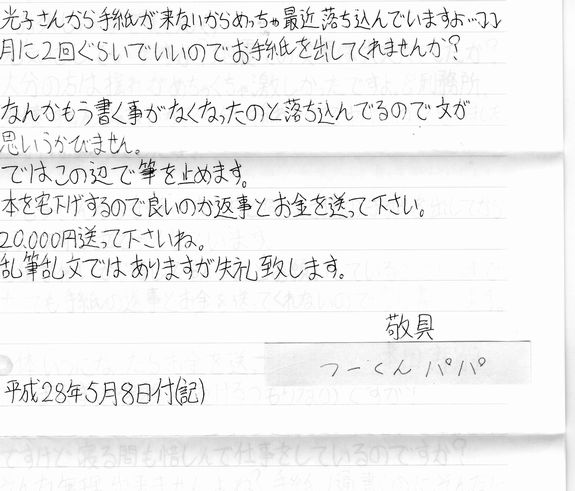 光子さんから手紙が来ないからめっちゃ最近落ち込んでいますよ…ココ
月に2回ぐらいでいいのでお手紙を出してくれませんか?
なんかもう書く事がなくなったのと落ち込んでるので文が
思いうかびません。
ではこの辺で筆を止めます。
本を宅下げするので良いのか返事とお金を送って下さい。
20.000円送って下さいね。
乱筆乱文ではありますが失礼致します。
敬具
つーくんパパ
平成28年5月8日付(記)
ですけど寝る間も惜しんで仕事をしているのですか?